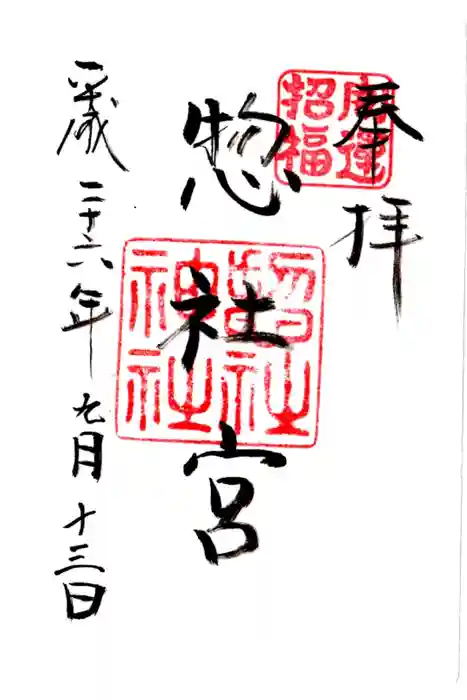 奉拝
招福
惣社宮
惣社
神社
平成二十六年九月十三日